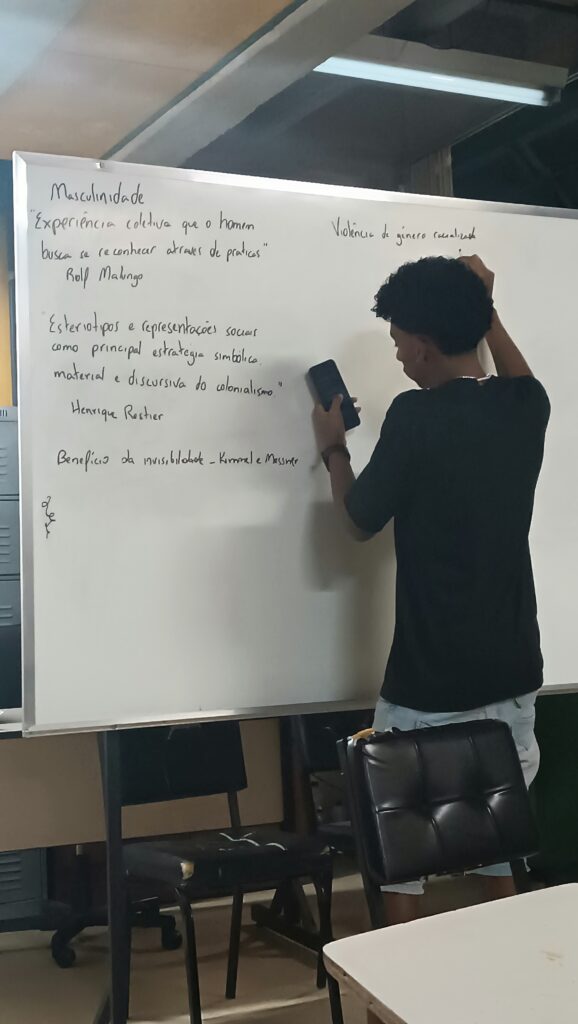 Masculinidade
"Experiência coletiva que o homem
busca se reconhecer atraves de praticas"
Rolf Malungo
"Esteriotipos e representações sociais
como principal estrategia simbólica,
material e discursiva do colonialismo"
Henrique Restier
Benefício da invisibilidade - Kimmel e Messner
Violência de gênero racializada